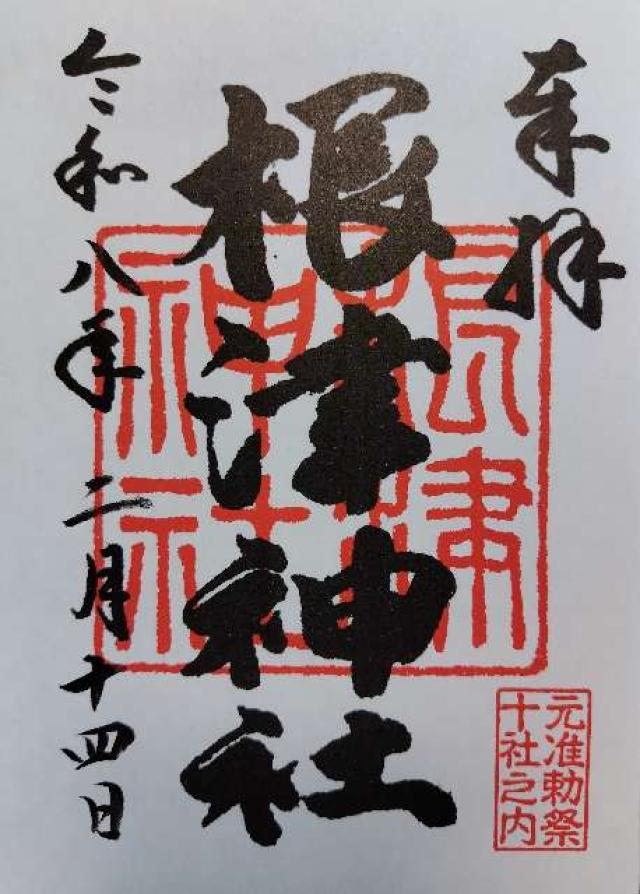 奉拝
根津神社
根津神社
令和八年二月十四日
元准勅祭
十社之内